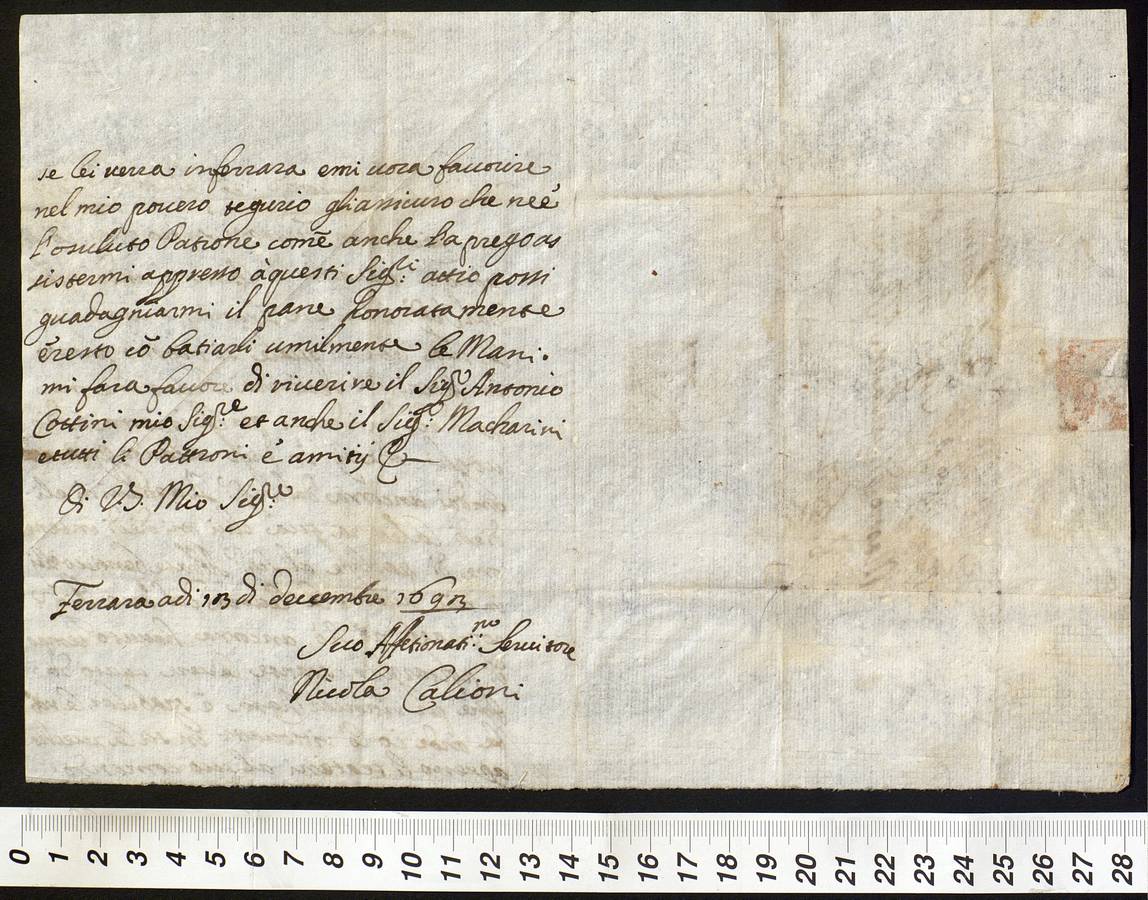 se lei uerra inferrara emi uora fauorire
nel mio pouero tegurio gliassicuro che neè
l'osuluto Patrone comē anche La prego as
sistermi appresso àquesti Sig.ri attio possi
guadagniarmi il pane honoratamente
ēresto cō batiarli umilmente le Mani.
mi fara fauore di riuerire il Sig.r Antonio
Cottini mio Sig.re et anche il Sig.r Macharini
etutti li Pattroni è amitij
di V.S. Mio Sig.re
Ferrara adi 13 di decembre 1693
Suo Affetionatis.mo Seruitore
Nicola Calioni
0 1 2 3 4 5 6 7 8 9 10 11 12 13 14 15 16 17 18 19 20 21 22 23 24 25 26 27 28